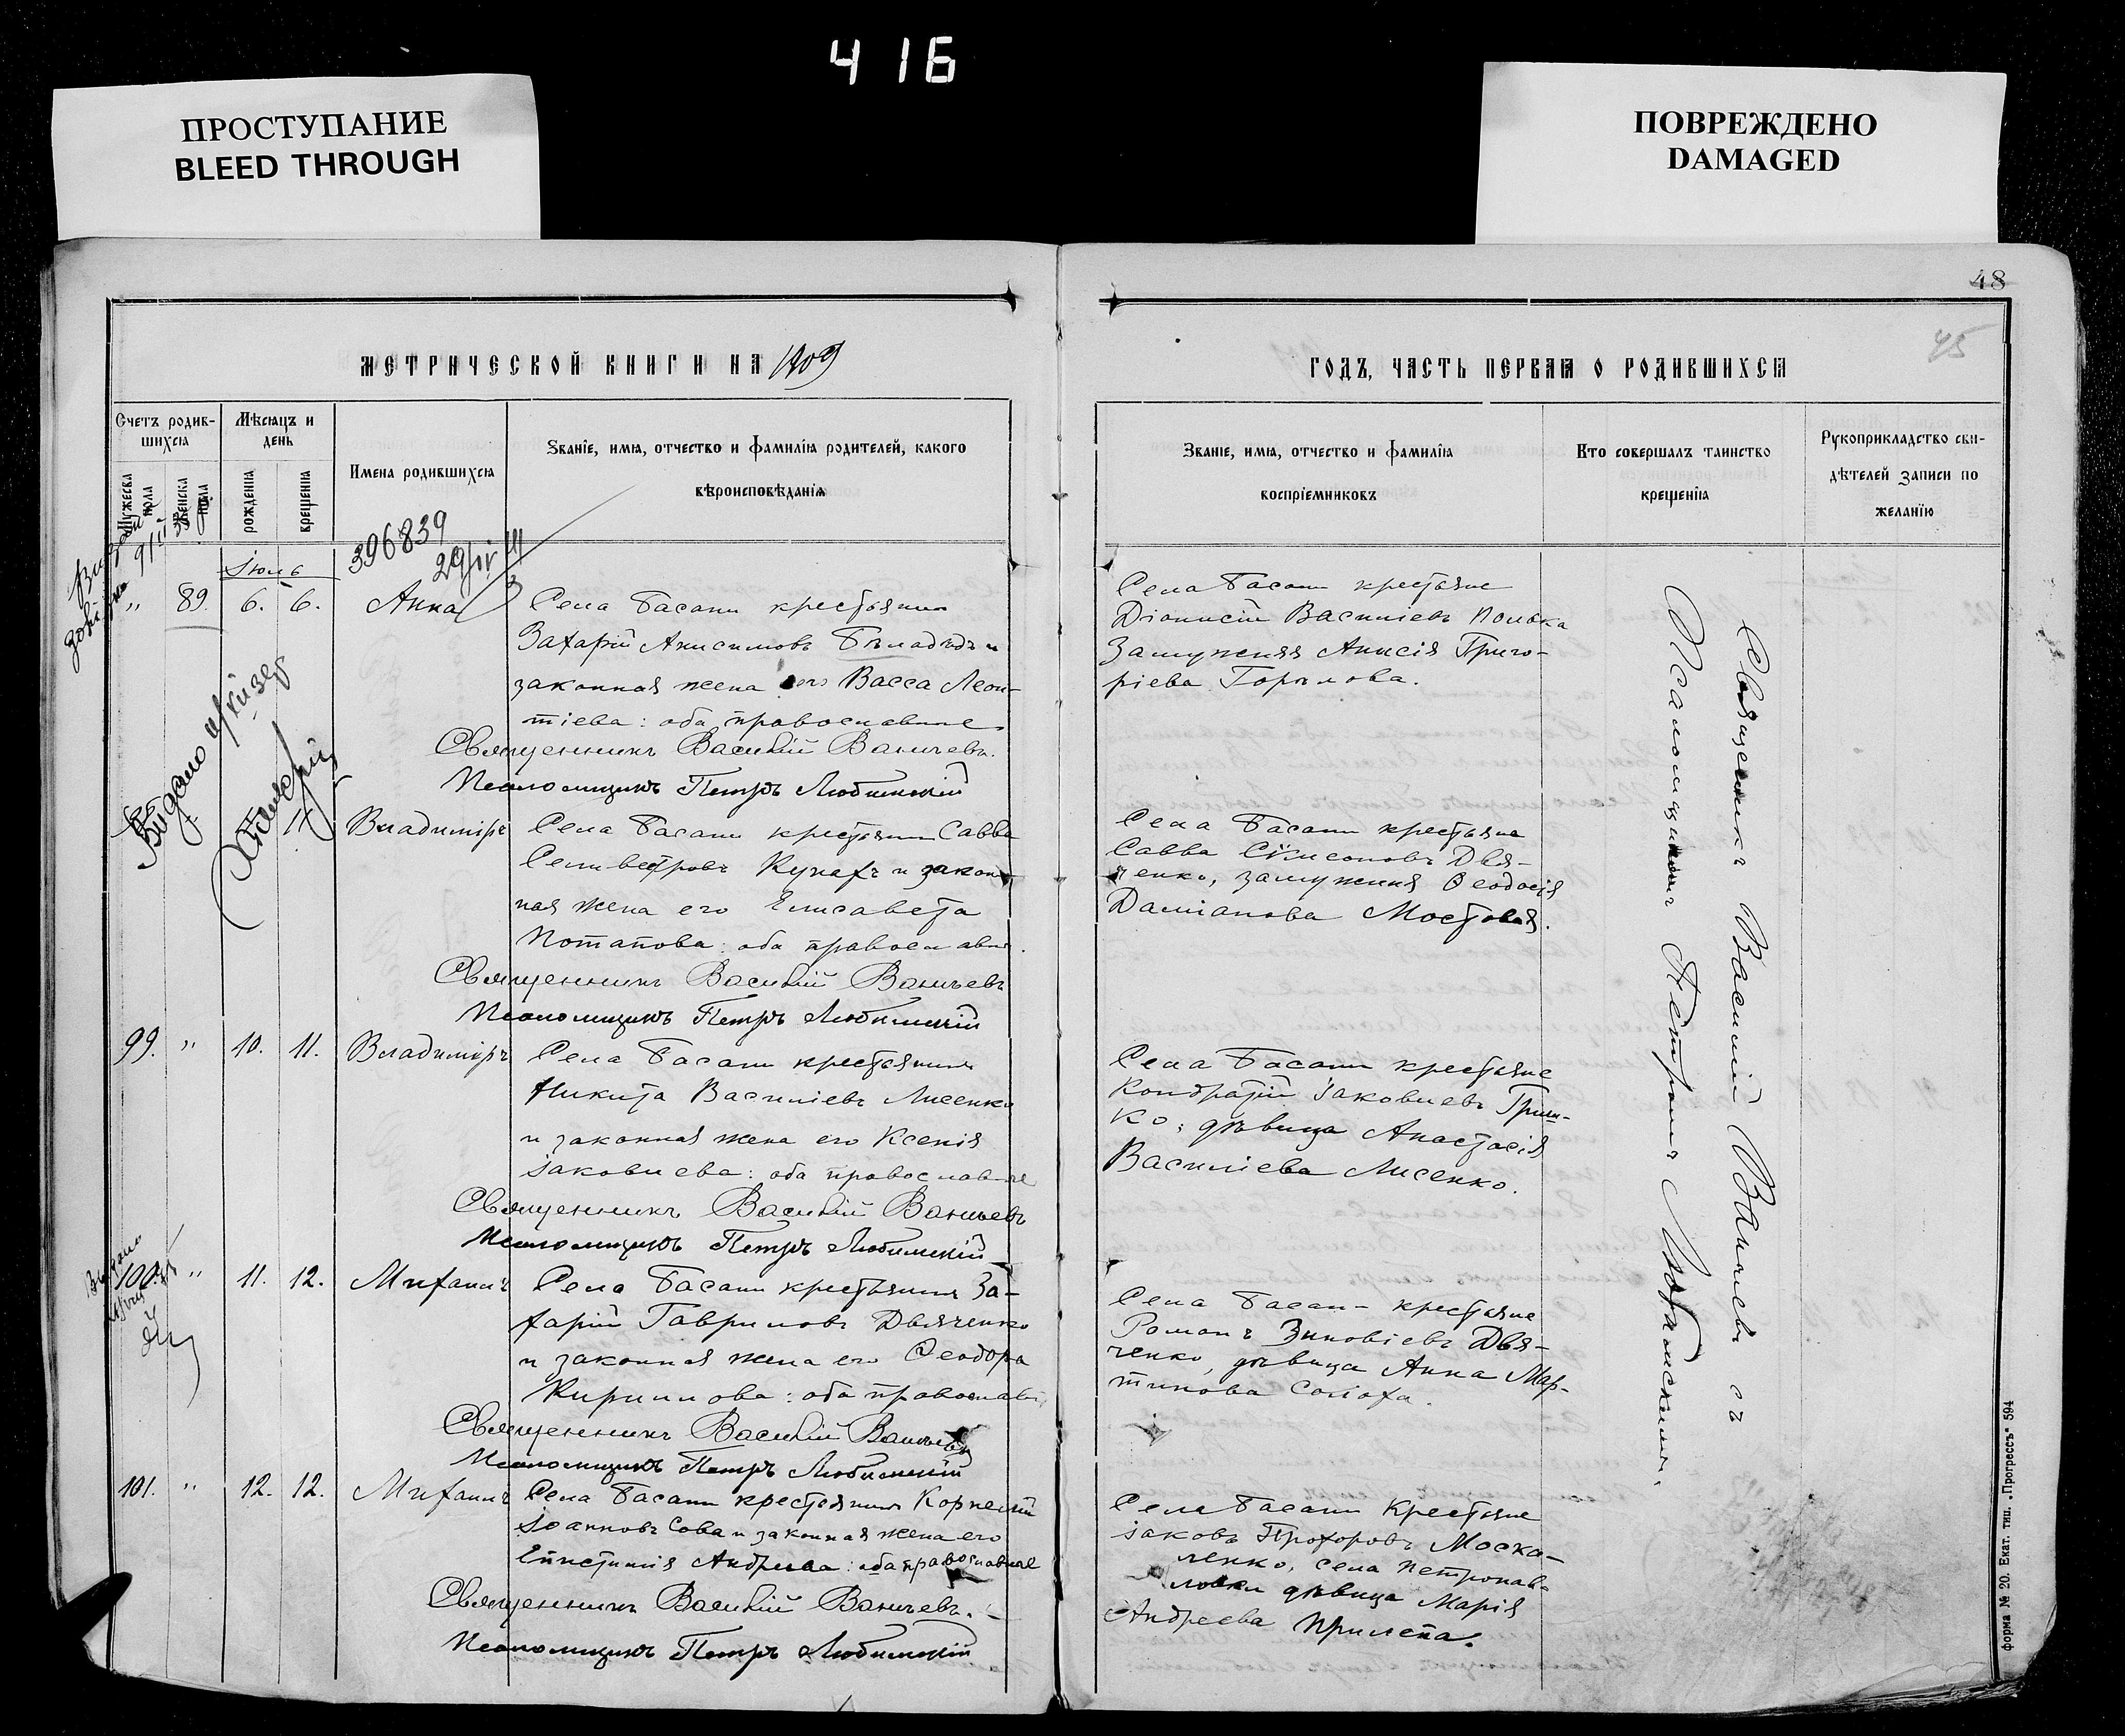 416
ПРОСТУПАНИЕ
BLEED THROUGH
ПОВРЕЖДЕНО
DAMAGED
48
45
МЕТРИЧЕСКОЙ КНИГИ НА 1909
ГОДЪ, ЧАСТЬ ПЕРВАЯ О РОДИВШИХСЯ
Счетъ родив-
шихся
Мужеска
пола
Женска
пола
Мѣсяцъ и
день
рожденія
крещенія
Имена родившихся
Званіе, имя, отчество и фамилія родителей, какого
вѣроисповѣданія
Званіе, имя, отчество и фамилія
воспріемниковъ
Кто совершалъ таинство
крещенія
Рукоприкладство сви-
дѣтелей записи по
желанію
396839
Іюль
„ 89. 6. 6. Анна
Села Басани крестьянин
Захарій Анисимовъ
законная жена его Васса Леон-
тіева: оба православные
Священникъ Василій Ваничевъ.
Псаломщикъ Петръ Любимскій
Села Басани крестьяне
Діонисій Василіевъ
Замужняя Анисія Григо-
ріева Горылова.
Видано
11. Владиміръ
Села Басани крестьянин Савва
Селивестровъ Кухарь и закон-
ная жена его Елисавета
Потапова: оба православн.
Священникъ Василій Ваничевъ
Псаломщикъ Петръ Любимскій
Села Басани крестьяне
Савва Симеоновъ Дья-
ченко, замужняя Ѳеодосія
Даміанова Мостовая.
99. „ 10. 11. Владиміръ
Села Басани крестьянинъ
Никита Василіевъ Лисенко
и законная жена его Ксенія
Іаковлева: оба православные
Священникъ Василій Ваничевъ
Псаломщикъ Петръ Любимскій
Села Басани крестьяне
Кондратій Іаковлевъ Гриш-
ко, дѣвица Анастасія
Василіева Лисенко.
100. „ 11. 12. Михаилъ
Села Басани крестьянинъ За-
харій Гавриловъ Дьяченко
и законная жена его Ѳеодора
Кириллова: оба православн.
Священникъ Василій Ваничевъ
Псаломщикъ Петръ Любимскій
Села Басан- крестьяне
Романъ Зиновіевъ Дья-
ченко, дѣвица Анна Мар-
тинова Солоха.
101. „ 12. 12. Михаилъ
Села Басани крестьянинъ Корнелій
Іоанновъ Сова и законная жена его
Епистимія Андреева: оба православные
Священникъ Василій Ваничевъ.
Псаломщикъ Петръ Любимскій
Села Басани Крестьяне
Іаковъ Прохоровъ Моска-
ленко, села Петропав-
ловки дѣвица Марія
Андреева Прилепа.
Священникъ Василій Ваничевъ съ
Псаломщикомъ Петромъ Любимскимъ.
форма № 20. Екат. тип. „Прогрессъ“ 594